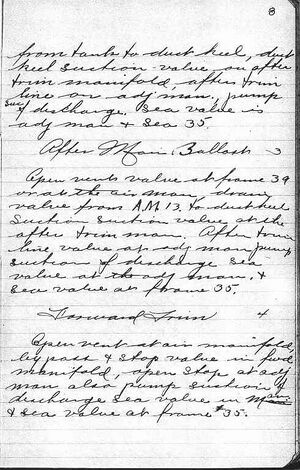 8
from tank to duct keel, duct
keel suction value on after
trim manifold, after trim
line on adj man, pump
suc & discharge. Sea value is
adj man & sea 35.
After Main Ballast 3
Open vents value at frame 39
or at the air man, drain
value from A.M. 13, to duct keel
suction suction value at the
after trim man. After trim
line value at adj man pump
suction & discharge sea
value at the adj man. &
sea value at frame 35.
Forward Trim 4
Open vent at air manifold,
by pass & stop value in fwd
manifold, open stop at adj
man also pump suction &
discharge sea value in man
& sea value at frame #35.